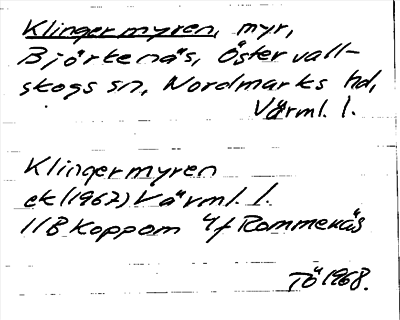 Klingermyren, myr,
Björkenäs, Östervall-
skogs sn, Nordmarks hd,
Värml. l.
Klingermyren
ek (1967) Värml. l.
11B Koppom 4f Rammenäs
TÖ 1968.